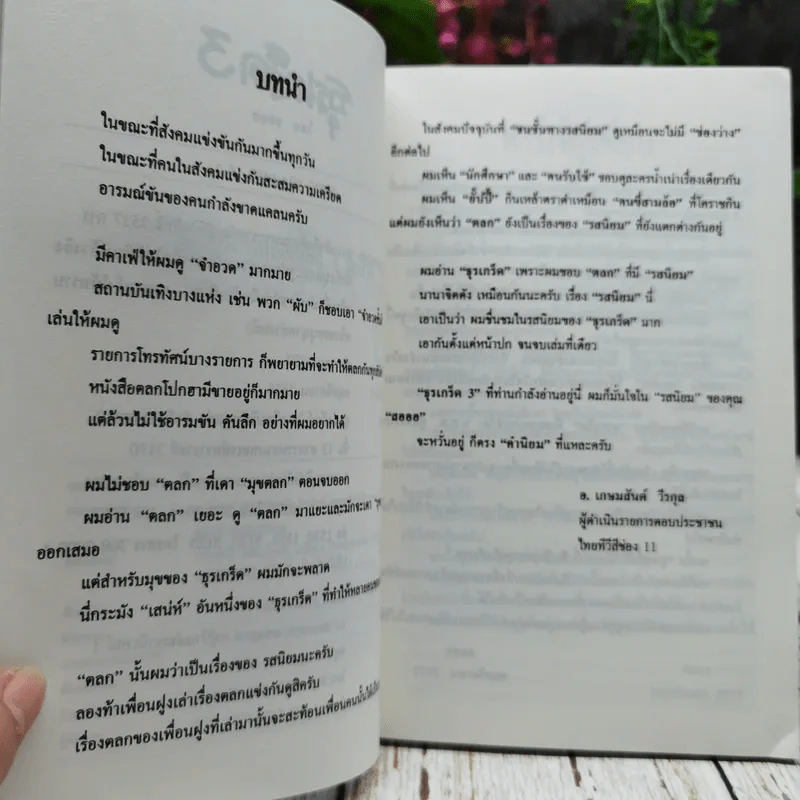 บทนำ
ในขณะที่สังคมแข่งขันกันมากขึ้นทุกวัน
ในขณะที่คนในสังคมแข่งกันสะสมความเครียด
อารมณ์ขันของคนกำลังขาดแคลนครับ
มีคาเฟ่ให้ผมดู “จำอวด” มากมาย
สถานบันเทิงบางแห่ง เช่น พวก “ผับ” ก็ชอบเอา
เล่นให้ผมดู
รายการโทรทัศน์บางรายการ ก็พยายามที่จะทำให้ตลกกัน
หนังสือตลกโปกฮามีขายอยู่ก็มากมาย
แต่ล้วนไม่ใช้อารมขัน คันลึก อย่างที่ผมอยากได้
ผมไม่ชอบ “ตลก” ที่เดา “มุขตลก” ตอนจบออก
ผมอ่าน “ตลก” เยอะ ดู “ตลก” มาแยะและมักจะเดา
ออกเสมอ
แต่สำหรับมุขของ “ธุรเกร็ด” ผมมักจะพลาด
นี่กระมัง “เสน่ห์” อันหนึ่งของ “ธุรเกร็ด” ที่ทำให้
“ตลก” นั้นผมว่าเป็นเรื่องของ รสนิยมนะครับ
ลองท้าเพื่อนฝูงเล่าเรื่องตลกแข่งกันดูสิครับ
เรื่องตลกของเพื่อนฝูงที่เล่ามานั้นจะสะท้อนเพื่อนคนนั้น
ในสังคมปัจจุบันที่ “ชนชั้นทางรสนิยม” ดูเหมือนจะไม่มี “ช่องว่าง”
อีกต่อไป
ผมเห็น “นักศึกษา” และ “คนรับใช้” ชอบดูละครน้ำเน่าเรื่องเดียวกัน
ผมเห็น “ยั๊ปปี้” กินเหล้าตราดำเหมือน “คนขี่สามล้อ” ที่โคราชกิน
แต่ผมยังเห็นว่า “ตลก” ยังเป็นเรื่องของ “รสนิยม” ที่ยังแตกต่างกันอยู่
ผมอ่าน “ธุรเกร็ด” เพราะผมชอบ “ตลก” ที่มี “รสนิยม”
นานาจิตตัง เหมือนกันนะครับ เรื่อง “รสนิยม” นี่
เอาเป็นว่า ผมชื่นชมในรสนิยมของ “ธุรเกร็ด” มาก
เอากันตั้งแต่หน้าปก จนจบเล่มทีเดียว
“ธุรเกร็ด 3” ที่ท่านกำลังอ่านอยู่นี่ ผมก็มั่นใจใน “รสนิยม” ของคุณ
“สอออ”
จะหวั่นอยู่ ก็ตรง “คำนิยม” ที่แหละครับ
อ. เกษมสันต์ วีรกุล
ผู้ดำเนินรายการตอบประชาชน
ไทยทีวีสีช่อง 11